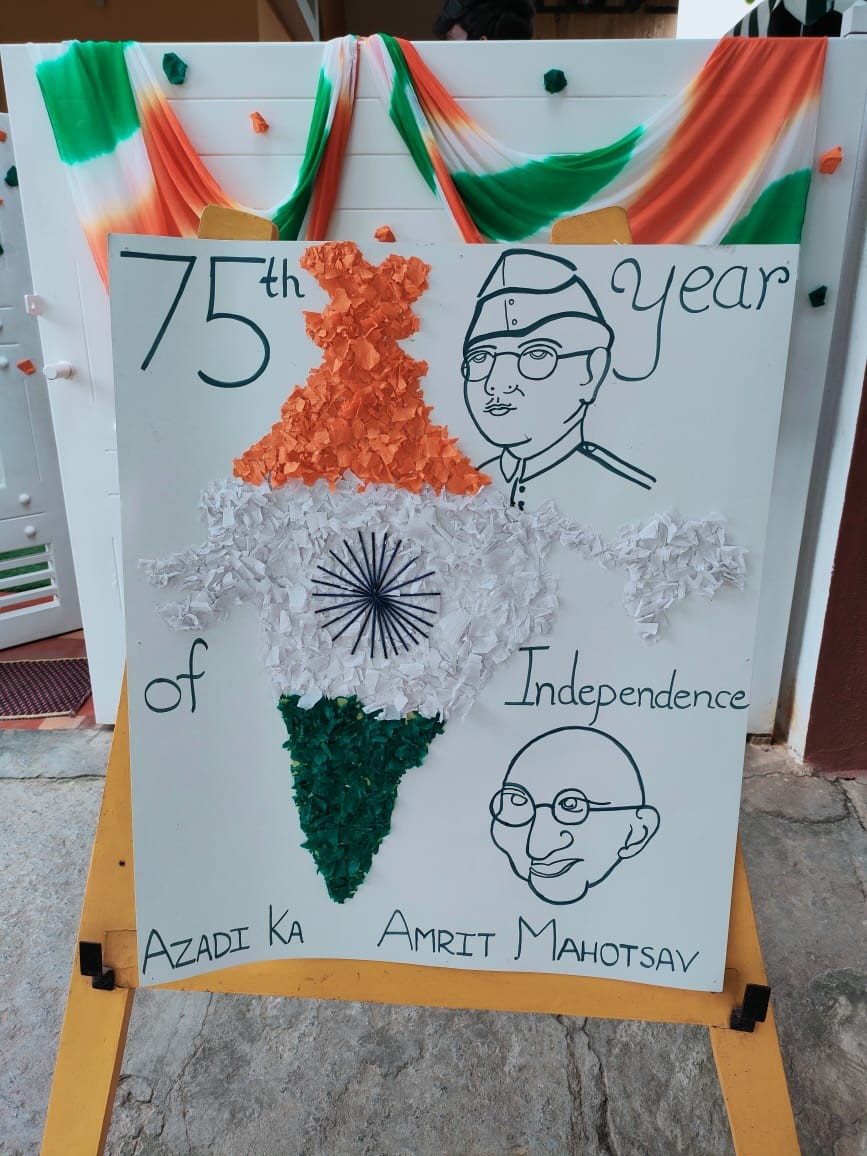 75th year
of Independence
AZADI KA AMRIT MAHOTSAV